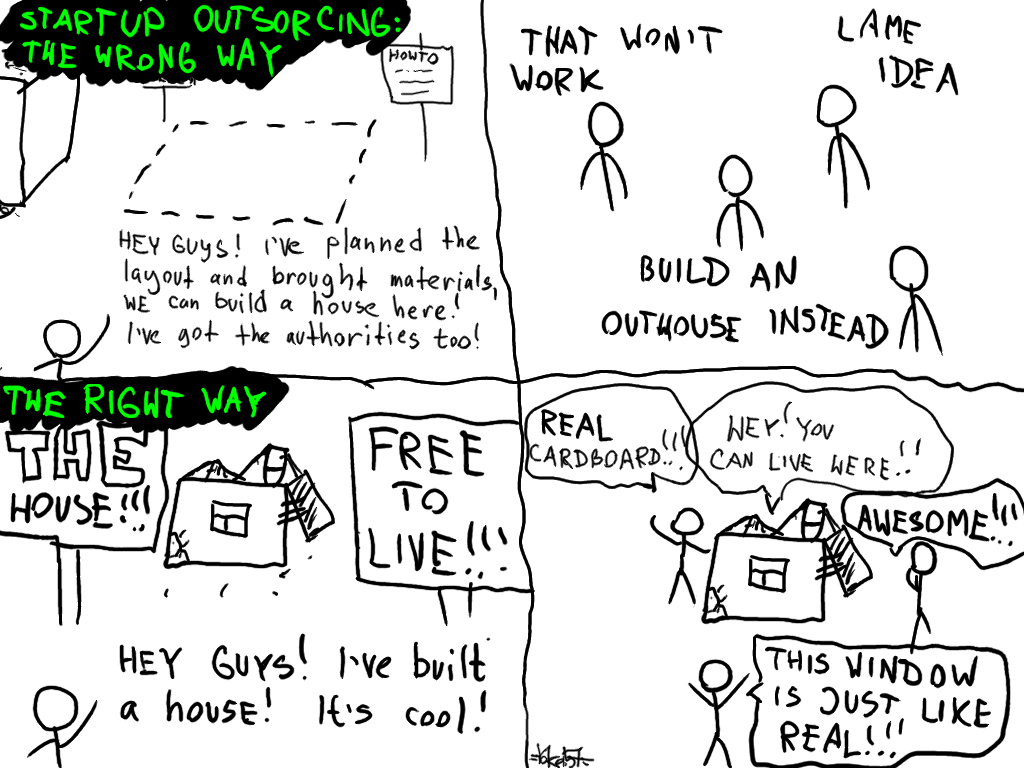 STARTUP OUTSORCING:
THE WRONG WAY
HOWTO
HEY GUYS! I'VE planned the
layout and brought materials,
WE can build a house here!
I've got the authorities too!
THAT WON'T
WORK
LAME
IDEA
BUILD AN
OUTHOUSE INSTEAD
THE RIGHT WAY
THE
HOUSE!!!
FREE
TO
LIVE!!!
HEY GUYS! I've built
a house! It's cool!
REAL
CARDBOARD!!!
HEY! YOU
CAN LIVE HERE!!
AWESOME!!!
THIS WINDOW
IS JUST LIKE
REAL!!!